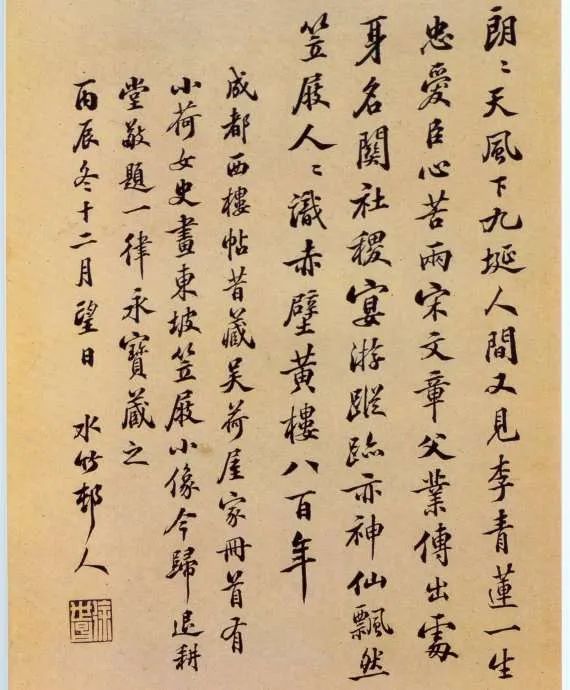 朗〻天風下九埏人間又見李青蓮一生
忠愛臣心苦兩宋文章父業傳出處
身名關社稷宴游蹤跡亦神仙飄然
笠屐人〻識赤壁黃樓八百年
成都西樓帖昔藏吳荷屋家冊首有
小荷女史畫東坡笠屐小像今歸退耕
堂敬題一律永寶藏之
丙辰冬十二月望日 水竹邨人